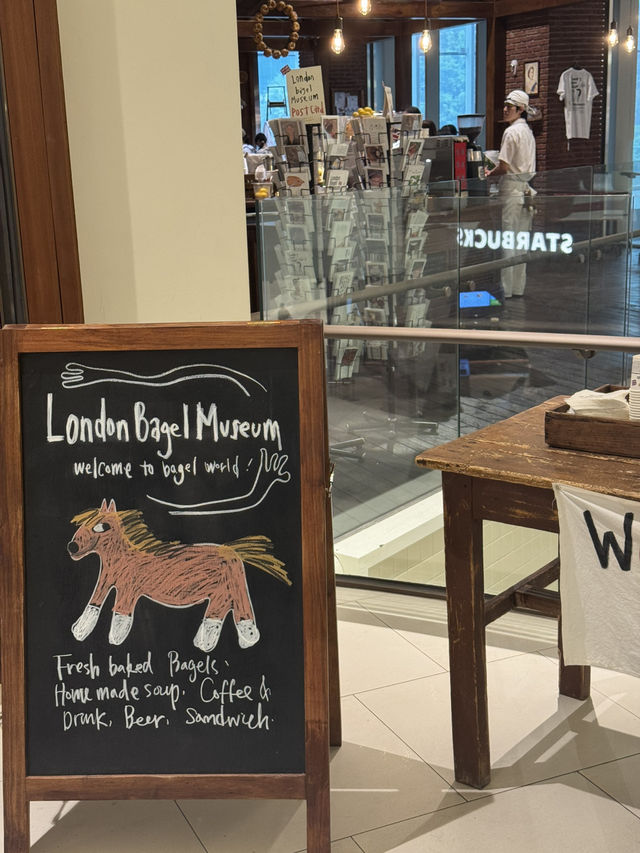 London
bagel
Museum
Post Card
STARBUCKS
London Bagel Museum
welcome to bagel world!
Fresh baked Bagels.
Home made soup. Coffee &
Drink, Beer, Sandwich.
W